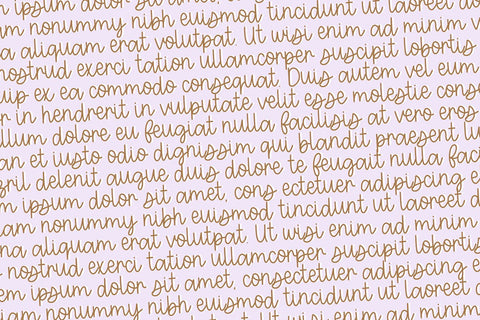 ipsum dolor sit amet, con
nonummy nibh euismod tincidunt ut laoreet do
a aliquam erat volutpat. Ut wisi enim ad minim v
nostrud exerci tation ullamcorper suscipit lobortis
uip ex ea commodo consequat. Duis autem vel eum
r in hendrerit in vulputate velit esse molestie conse
illum dolore eu feugiat nulla facilisis at vero eros
an et iusto odio dignissim qui blandit praesent lu
zril delenit augue duis dolore te feugait nulla faci
m ipsum dolor sit amet, cons ectetuer adipiscing e
am nonummy nibh euismod tincidunt ut laoreet d
na aliquam erat volutpat. Ut wisi enim ad minim
nostrud exerci tation ullamcorper suscipit lobortis
em ipsum dolor sit amet, consectetuer adipiscing e
am nonummy nibh euismod tincidunt ut laoreet d
aliquam erat volutpat. Ut wisi enim ad minim